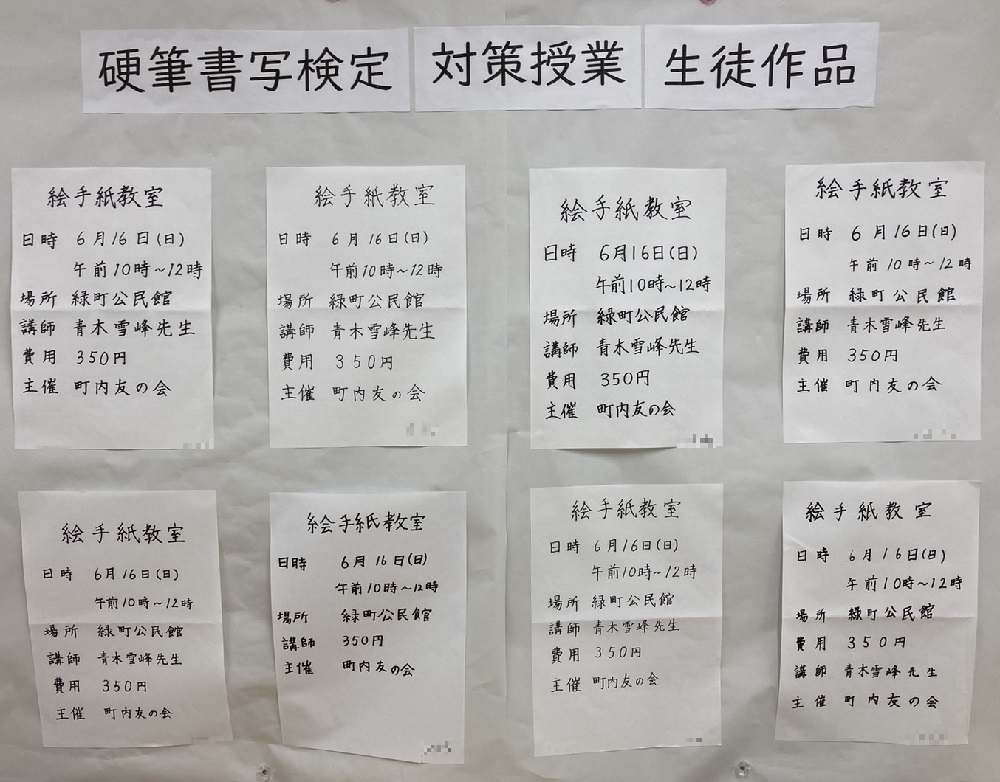 硬筆書写検定 対策授業 生徒作品
絵手紙教室
日時 6月16日(日)
午前10時～12時
場所 緑町公民館
講師 青木雪峰先生
費用 350円
主催 町内友の会
絵手紙教室
日時 6月16日(日)
午前10時～12時
場所 緑町公民館
講師 青木雪峰先生
費用 350円
主催 町内友の会
絵手紙教室
日時 6月16日(日)
午前10時～12時
場所 緑町公民館
講師 青木雪峰先生
費用 350円
主催 町内友の会
絵手紙教室
日時 6月16日(日)
午前10時～12時
場所 緑町公民館
講師 青木雪峰先生
費用 350円
主催 町内友の会
絵手紙教室
日時 6月16日(日)
午前10時～12時
場所 緑町公民館
講師 青木雪峰先生
費用 350円
主催 町内友の会
絵手紙教室
日時 6月16日(日)
午前10時～12時
場所 緑町公民館
講師 350円
主催 町内友の会
絵手紙教室
日時 6月16日(日)
午前10時～12時
場所 緑町公民館
講師 青木雪峰先生
費用 350円
主催 町内友の会
絵手紙教室
日時 6月16日(日)
午前10時～12時
場所 緑町公民館
費用 350円
講師 青木雪峰先生
主催 町内友の会